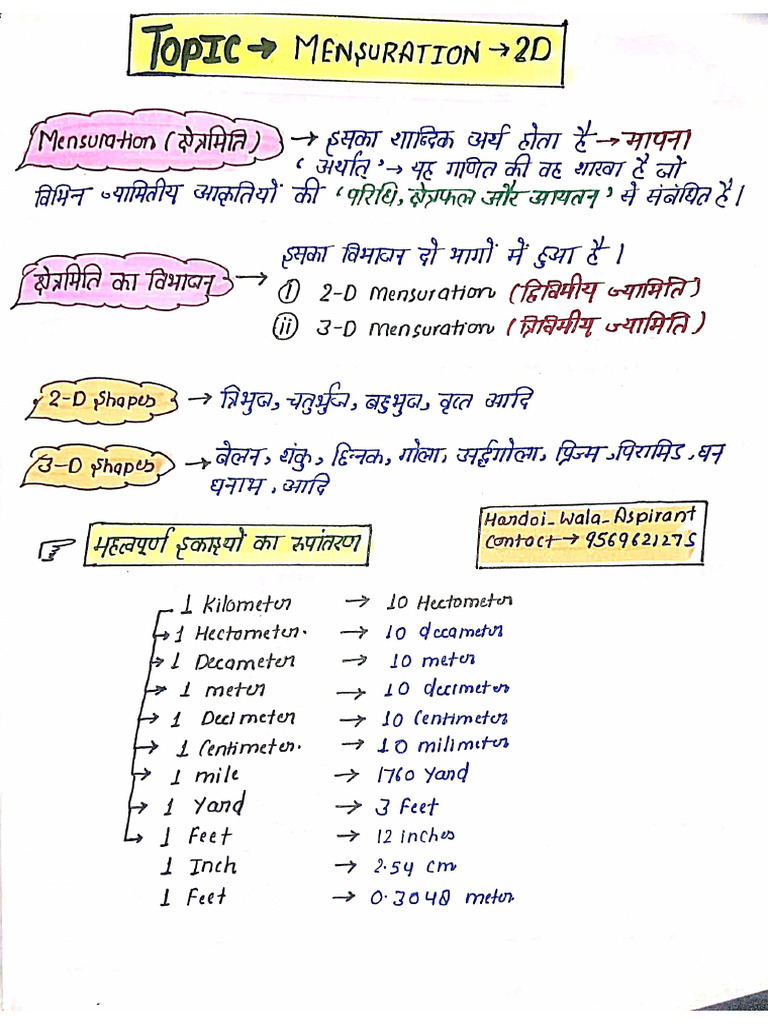 TOPIC → MENSURATION → 2D
Mensuration (क्षेत्रमिति) → इसका शाब्दिक अर्थ होता है → मापना
'अर्थात' → यह गणित की वह शाखा है जो
विभिन ज्यामितीय आकृतियों की 'परिधि, क्षेत्रफल और आयतन' से संबंधित है।
इसका विभाजन दो भागों में हुआ है।
क्षेत्रमिति का विभाजन → (i) 2-D Mensuration (द्विविमीय ज्यामिति)
(ii) 3-D Mensuration (त्रिविमीय ज्यामिति)
2-D Shapes → त्रिभुज, चतुर्भुज, बहुभुज, वृत्त आदि
3-D Shapes → बेलन, शंकु, छिन्नक, गोला, अर्द्धगोला, प्रिज्म, पिरामिड, घन
घनाभ, आदि
महत्वपूर्ण इकाइयों का रूपांतरण
Hardoi_Wala_Aspirant
Contact → 9569621275
1 Kilometer → 10 Hectometer
1 Hectometer. → 10 decameter
1 Decameter → 10 meter
1 meter → 10 decimeter
1 Decimeter → 10 Centimeter
1 Centimeter. → 10 milimeter
1 mile → 1760 Yard
1 Yard → 3 Feet
1 Feet → 12 inches
1 Inch → 2.54 cm
1 Feet → 0.3048 meter